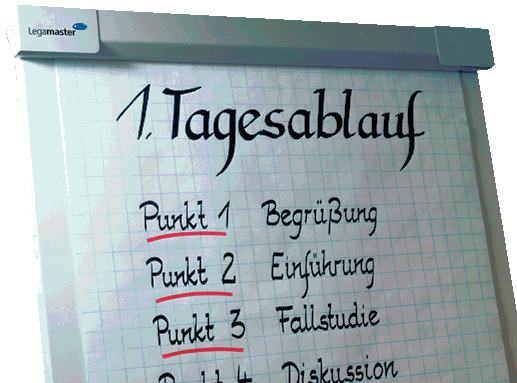 Legamaster
1. Tagesablauf
Punkt 1 Begrüßung
Punkt 2 Einführung
Punkt 3 Fallstudie
Punkt 4 Diskussion